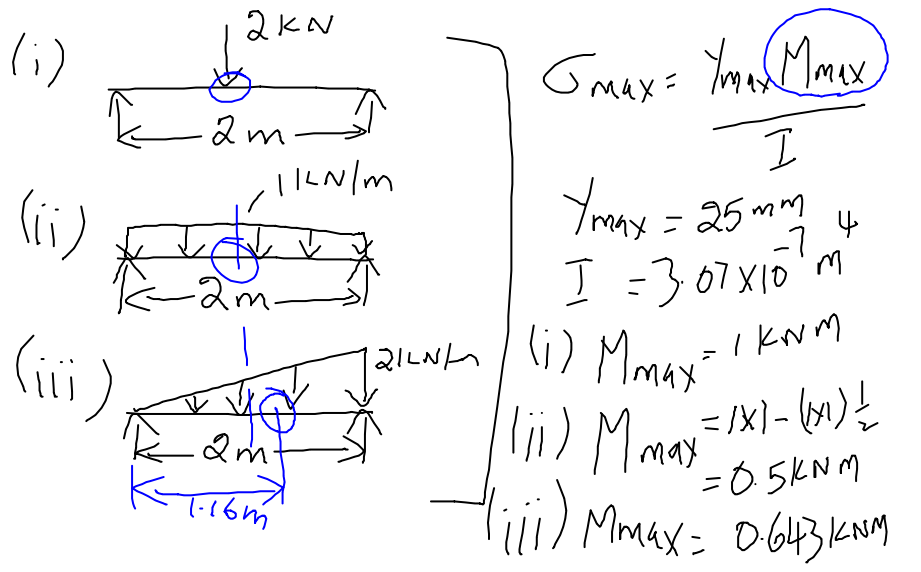 (i)
2 KN
2 m
(ii)
1 KN/m
2 m
(iii)
2 KN/m
2 m
1.16m
σmax = Ymax Mmax
I
Ymax = 25 mm
I = 3.07x10⁻⁷ m⁴
(i) Mmax = 1 KNM
(ii) Mmax = 1x1-(1x1)½
= 0.5KNM
(iii) Mmax = 0.643KNM